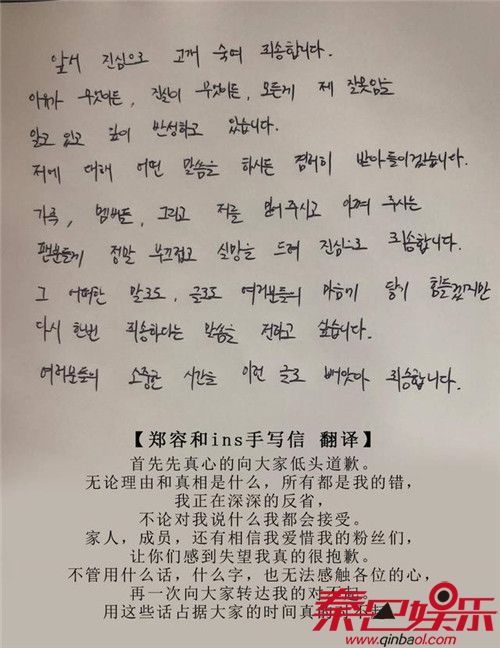 앞서 진심으로 고개 숙여 죄송합니다.
이유가 무엇이든, 진실이 무엇이든, 모든게 제 잘못임을
알고 있고 깊이 반성하고 있습니다.
저에 대해 어떤 말씀을 하시든 겸허히 받아들이겠습니다.
가족, 멤버들, 그리고 저를 믿어주시고 아껴 주시는
팬분들께 정말 부끄럽고 실망을 드려 진심으로 죄송합니다.
그 어떠한 말로도, 글로도 여러분들의 마음에 닿기 힘들겠지만
다시 한번 죄송하다는 말씀을 전하고 싶습니다.
여러분들의 소중한 시간을 이런 글로 빼앗아 죄송합니다.
【郑容和ins手写信 翻译】
首先先真心的向大家低头道歉。
无论理由和真相是什么，所有都是我的错，
我正在深深的反省，
不论对我说什么我都会接受。
家人，成员，还有相信我爱惜我的粉丝们，
让你们感到失望我真的很抱歉。
不管用什么话，什么字，也无法感触各位的心，
再一次向大家转达我的对不起。
用这些话占据大家的时间真的
秦巴娱乐
www.qinbaol.com